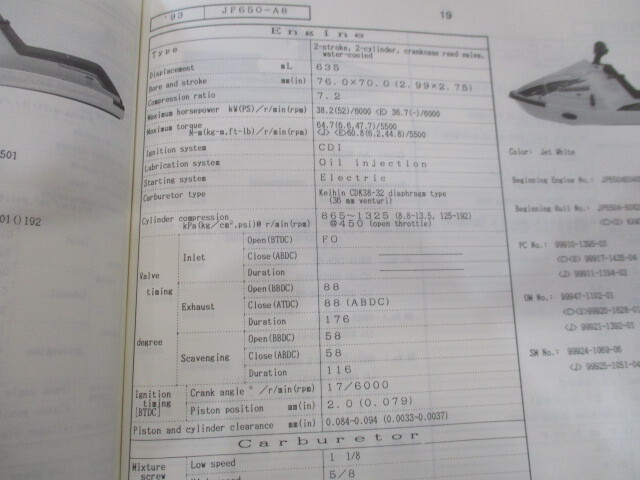 '93 JF650-A8
19
Engine
Type 2-stroke, 2-cylinder, crankcase reed valve, water-cooled
Displacement mL 635
Bore and stroke mm(in) 76.0×70.0 (2.99×2.75)
Compression ratio 7.2
Maximum horsepower kW(PS)/r/min(rpm) 38.2(52)/6000 <E> 36.7(-)/6000
Maximum torque 64.7(6.6,47.7)/5500
N-m(kg-m,ft-lb)/r/min(rpm) <J> <E>60.8(6.2,44.8)/5500
Ignition system CDI
Lubrication system Oil injection
Starting system Electric
Carburetor type Keihin CDK38-32 diaphragm type
(36 mm venturi)
Cylinder compression 865~1325 (8.8-13.5, 125-192)
kPa(kg/cm²,psi)@ r/min(rpm) @450 (open throttle)
Valve timing degree
Inlet Open(BTDC) FO
Close(ABDC)
Duration
Exhaust Open(BBDC) 88
Close(ATDC) 88 (ABDC)
Duration 176
Scavenging Open(BBDC) 58
Close(ABDC) 58
Duration 116
Ignition timing [BTDC]
Crank angle ° /r/min(rpm) 17/6000
Piston position mm(in) 2.0 (0.079)
Piston and cylinder clearance mm(in) 0.084-0.094 (0.0033-0.0037)
Carburetor
Mixture screw
Low speed 1 1/8
5/8
501
01()192
Color: Jet White
Beginning Engine No.:
Beginning Hull No.:
PC No.: 99910-1395-03
99917-1435-04
<J> 99911-1394-03
OM No.: 99947-1192-01
99920-1628-01
<J> 99921-1392-01
SM No.: 99924-1069-06
<J> 99925-1051-04